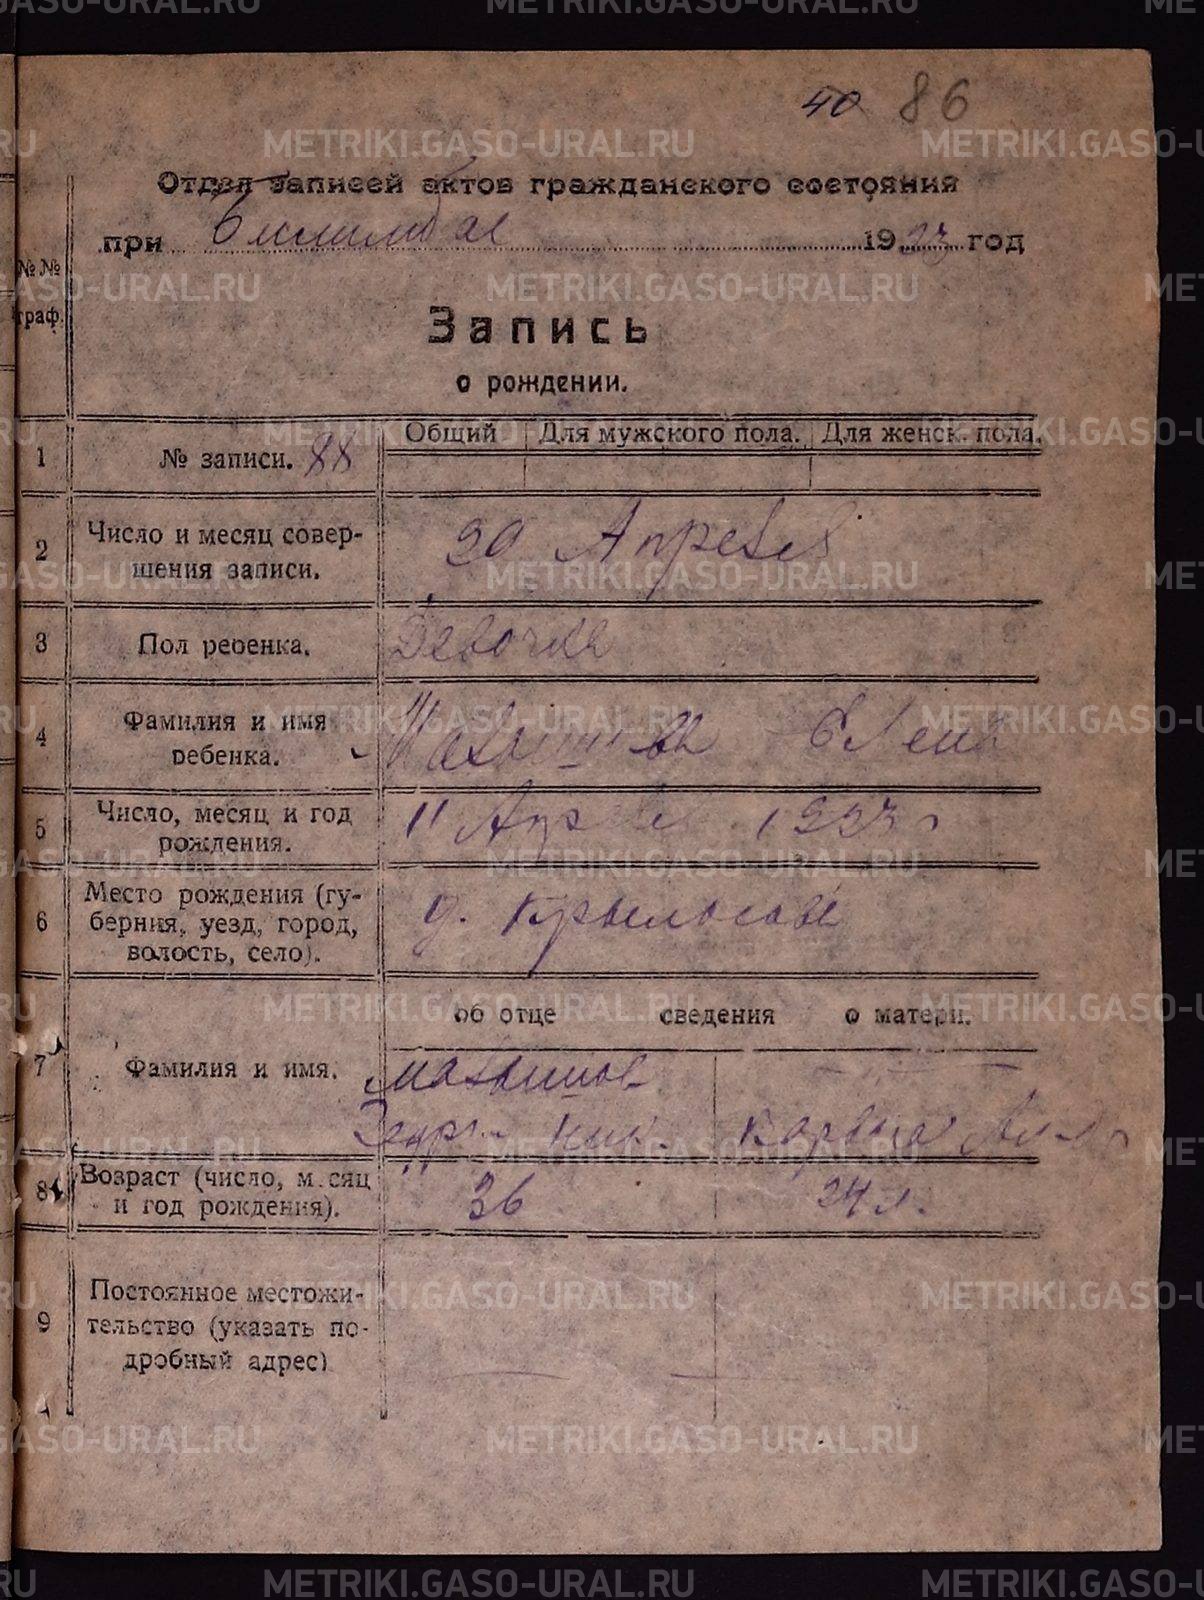 40 86
Отдел записей актов гражданского состояния
при Билимбае 1923 год
№№
граф.
Запись
о рождении.
Общий Для мужского пола. Для женск. пола.
1 № записи. 88
2 Число и месяц совер-
шения записи.
30 Апреля
3 Пол ребенка. Девочка
4 Фамилия и имя
ребенка.
Елена
5 Число, месяц и год
рождения.
11 Апреля 1923 г
6 Место рождения (гу-
берния, уезд, город,
волость, село).
д. Крылосова
об отце сведения о матери.
7 Фамилия и имя.
8 Возраст (число, м.сяц
и год рождения).
36 24 л.
9 Постоянное местожи-
тельство (указать по-
дробный адрес)
METRIKI.GASO-URAL.RU